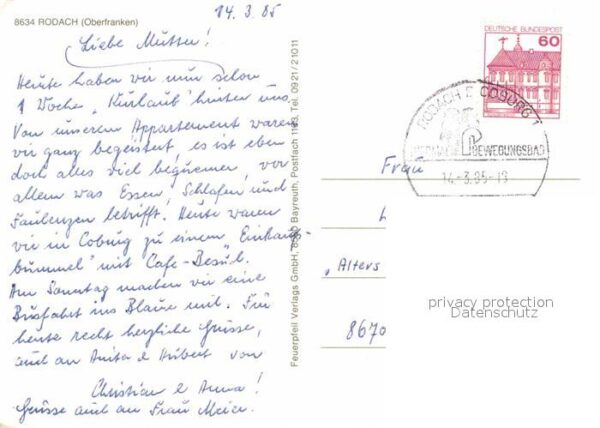 14.3.85
8634 RODACH (Oberfranken)
Liebe Mutter!
Heute haben wir nun schon
1 Woche „Kurlaub" hinter uns.
Von unserem Appartement waren
wir ganz begeistert, es ist eben
doch alles viel bequemer, vor
allem was Essen, Schlafen und
Faulenzen betrifft. Heute waren
wir in Coburg zu einem „Einkaufs-
bummel" mit Cafe-Besuch.
Am Sonntag machen wir eine
Busfahrt ins Blaue mit. Für
heute recht herzliche Grüsse,
auch an Anita & Hubert von
Christian & Anna!
Grüsse auch an Frau Meier.
Feuerpfeil Verlags GmbH, 8580 Bayreuth, Postfach 1163, Tel. 09 21 / 21011
DEUTSCHE BUNDESPOST
60
RODACH B COBURG 1
THERMAL BEWEGUNGSBAD
14.-3.85-18
Frau
„Alters
8670
privacy protection
Datenschutz